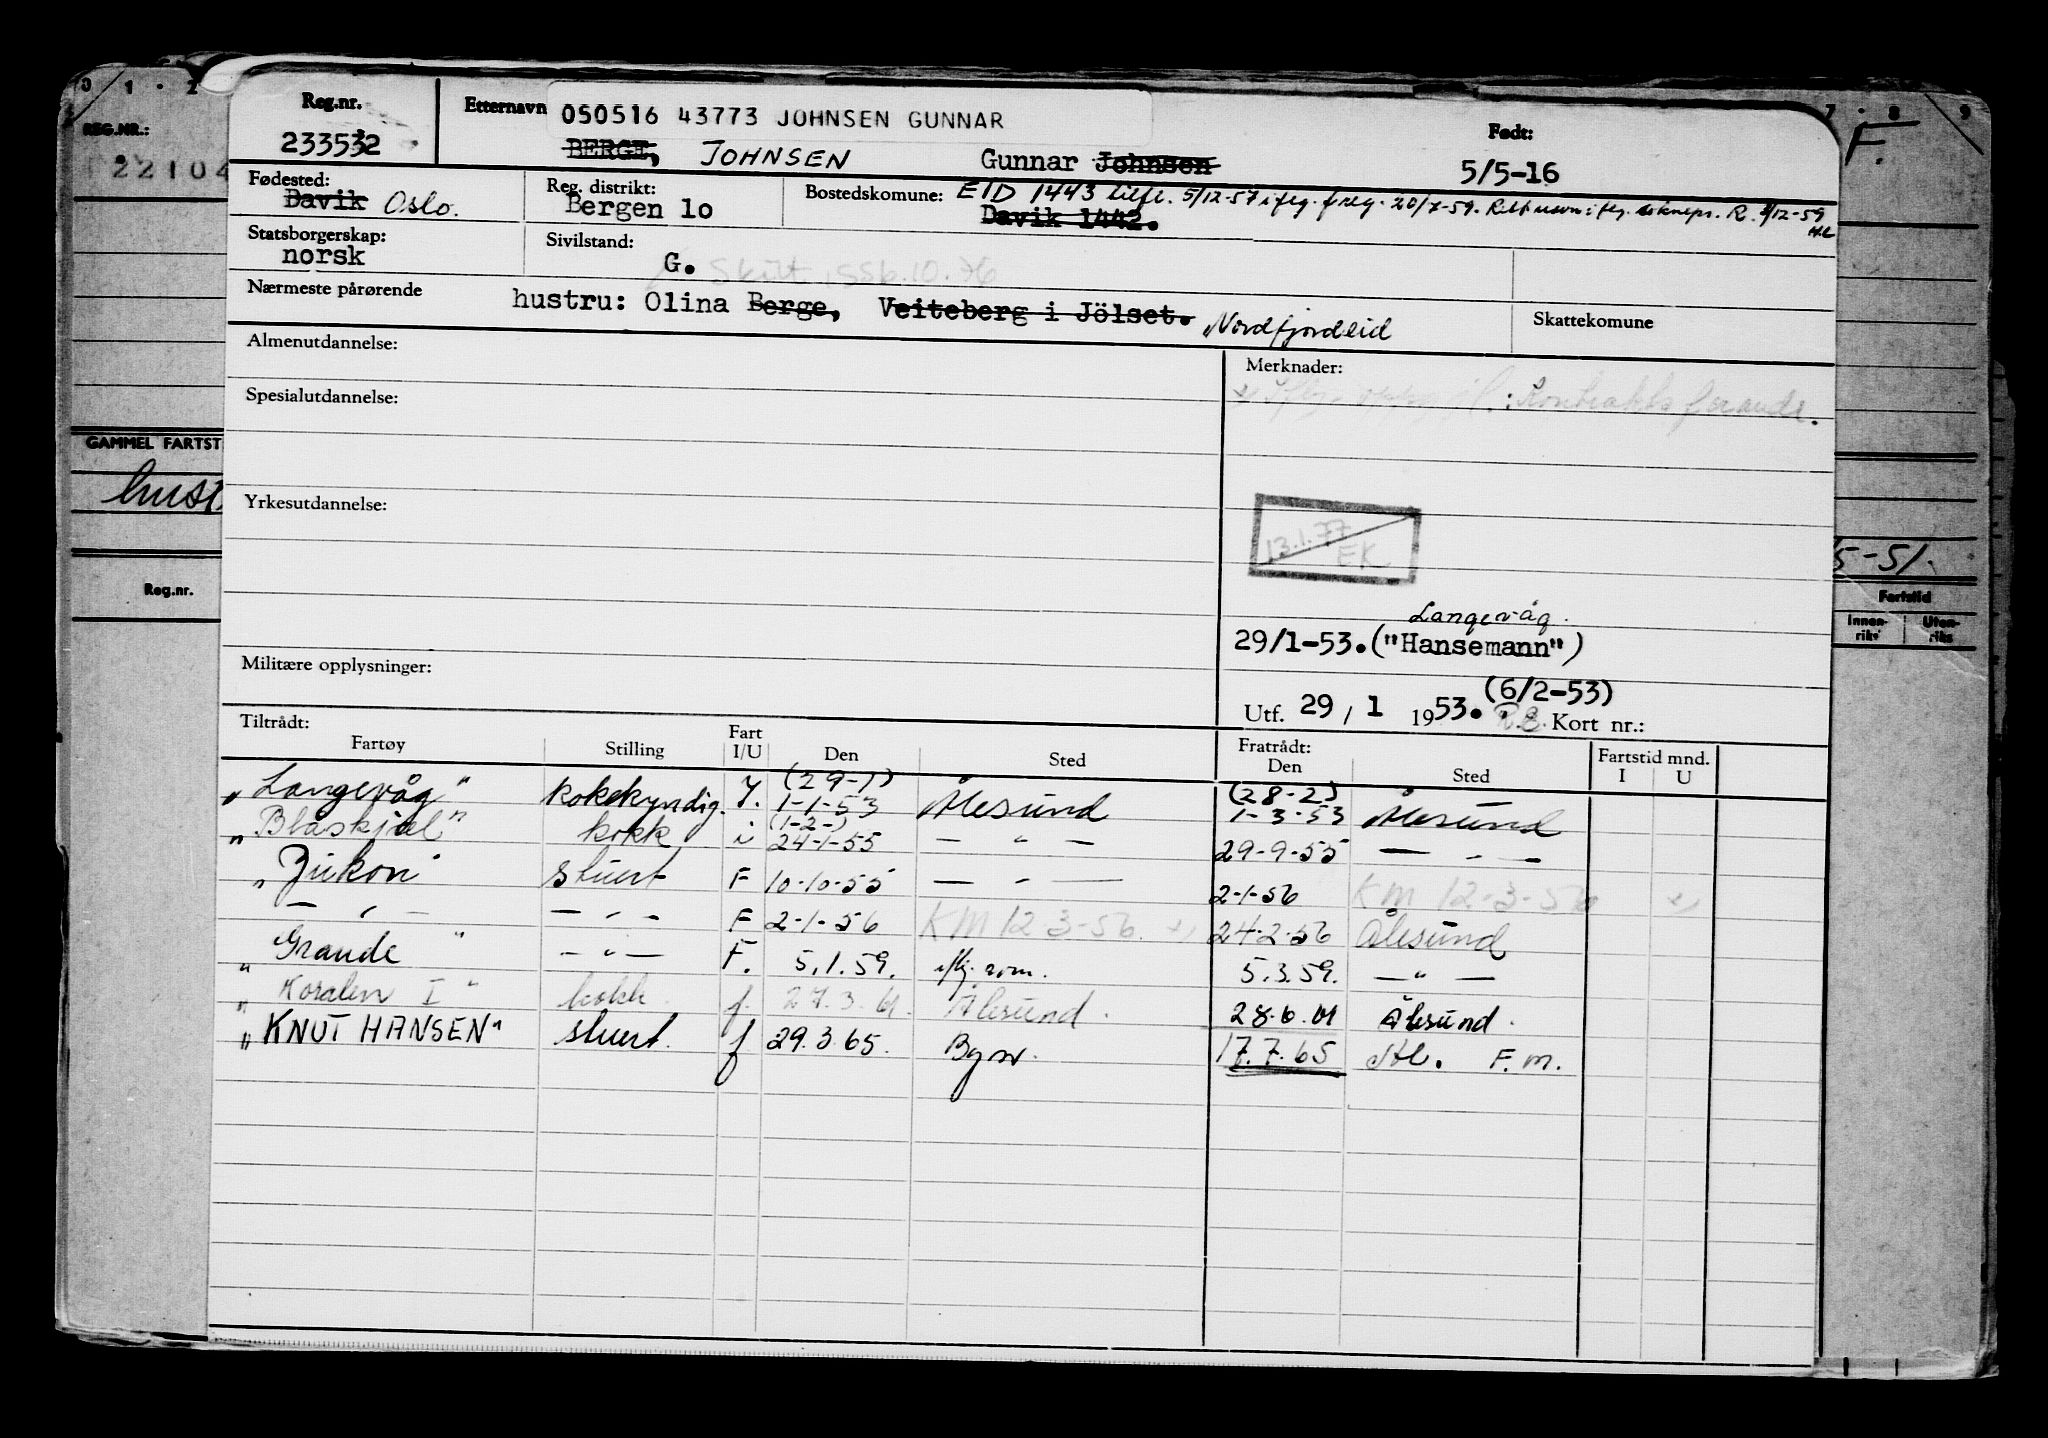 0 1 · 2
7 · 8 9
REG.NR.:
22104
F.
GAMMEL FARTST
hust
Reg.nr.
5-51.
Fartstid
Innen-riks Uten-riks
Reg.nr.
233532
Etternavn
050516 43773 JOHNSEN GUNNAR
BERGE, JOHNSEN Gunnar Johnsen
Født:
5/5-16
Fødested:
Davik Oslo.
Reg. distrikt:
Bergen 1o
Bostedskomune: EID 1443 5/12-57 20/7-59. R. 12-59
Davik 1442.
Statsborgerskap:
norsk
Sivilstand:
G. Skilt 10.76
Nærmeste pårørende
hustru: Olina Berge, Veiteberg i Jölset. Nordfjordeid
Skattekomune
Almenutdannelse:
Merknader:
: Kontrakts
Spesialutdannelse:
Yrkesutdannelse:
13.1.77
EK
Langevåg.
29/1-53.("Hansemann")
Militære opplysninger:
(6/2-53)
Utf. 29 / 1 1953. Kort nr.:
Tiltrådt: Fratrådt:
Fartøy Stilling Fart I/U Den Sted Den Sted Fartstid mnd. I U
(29-1) (28-2)
„Langevåg" kokekyndig. I. 1-1-53 Ålesund 1-3-53 Ålesund
(1-2-)
„Blåskjel" kokk i 24-1-55 — " — 29-9-55 — " —
„Jukon" stuert F 10-10-55 — " — 2-1-56 KM 12-3-56 x)
— " — — " — F 2-1-56 KM 12 3-56. x) 24-2-56 Ålesund
„Grande" — " — F. 5.1.59. 5.3.59. — " —
„Koralen I" kokk f. 27.3.61 Ålesund. 28.6.61 Ålesund.
„KNUT HANSEN" stuert. f 29.3.65. Bgn. 17.7.65 F.m.